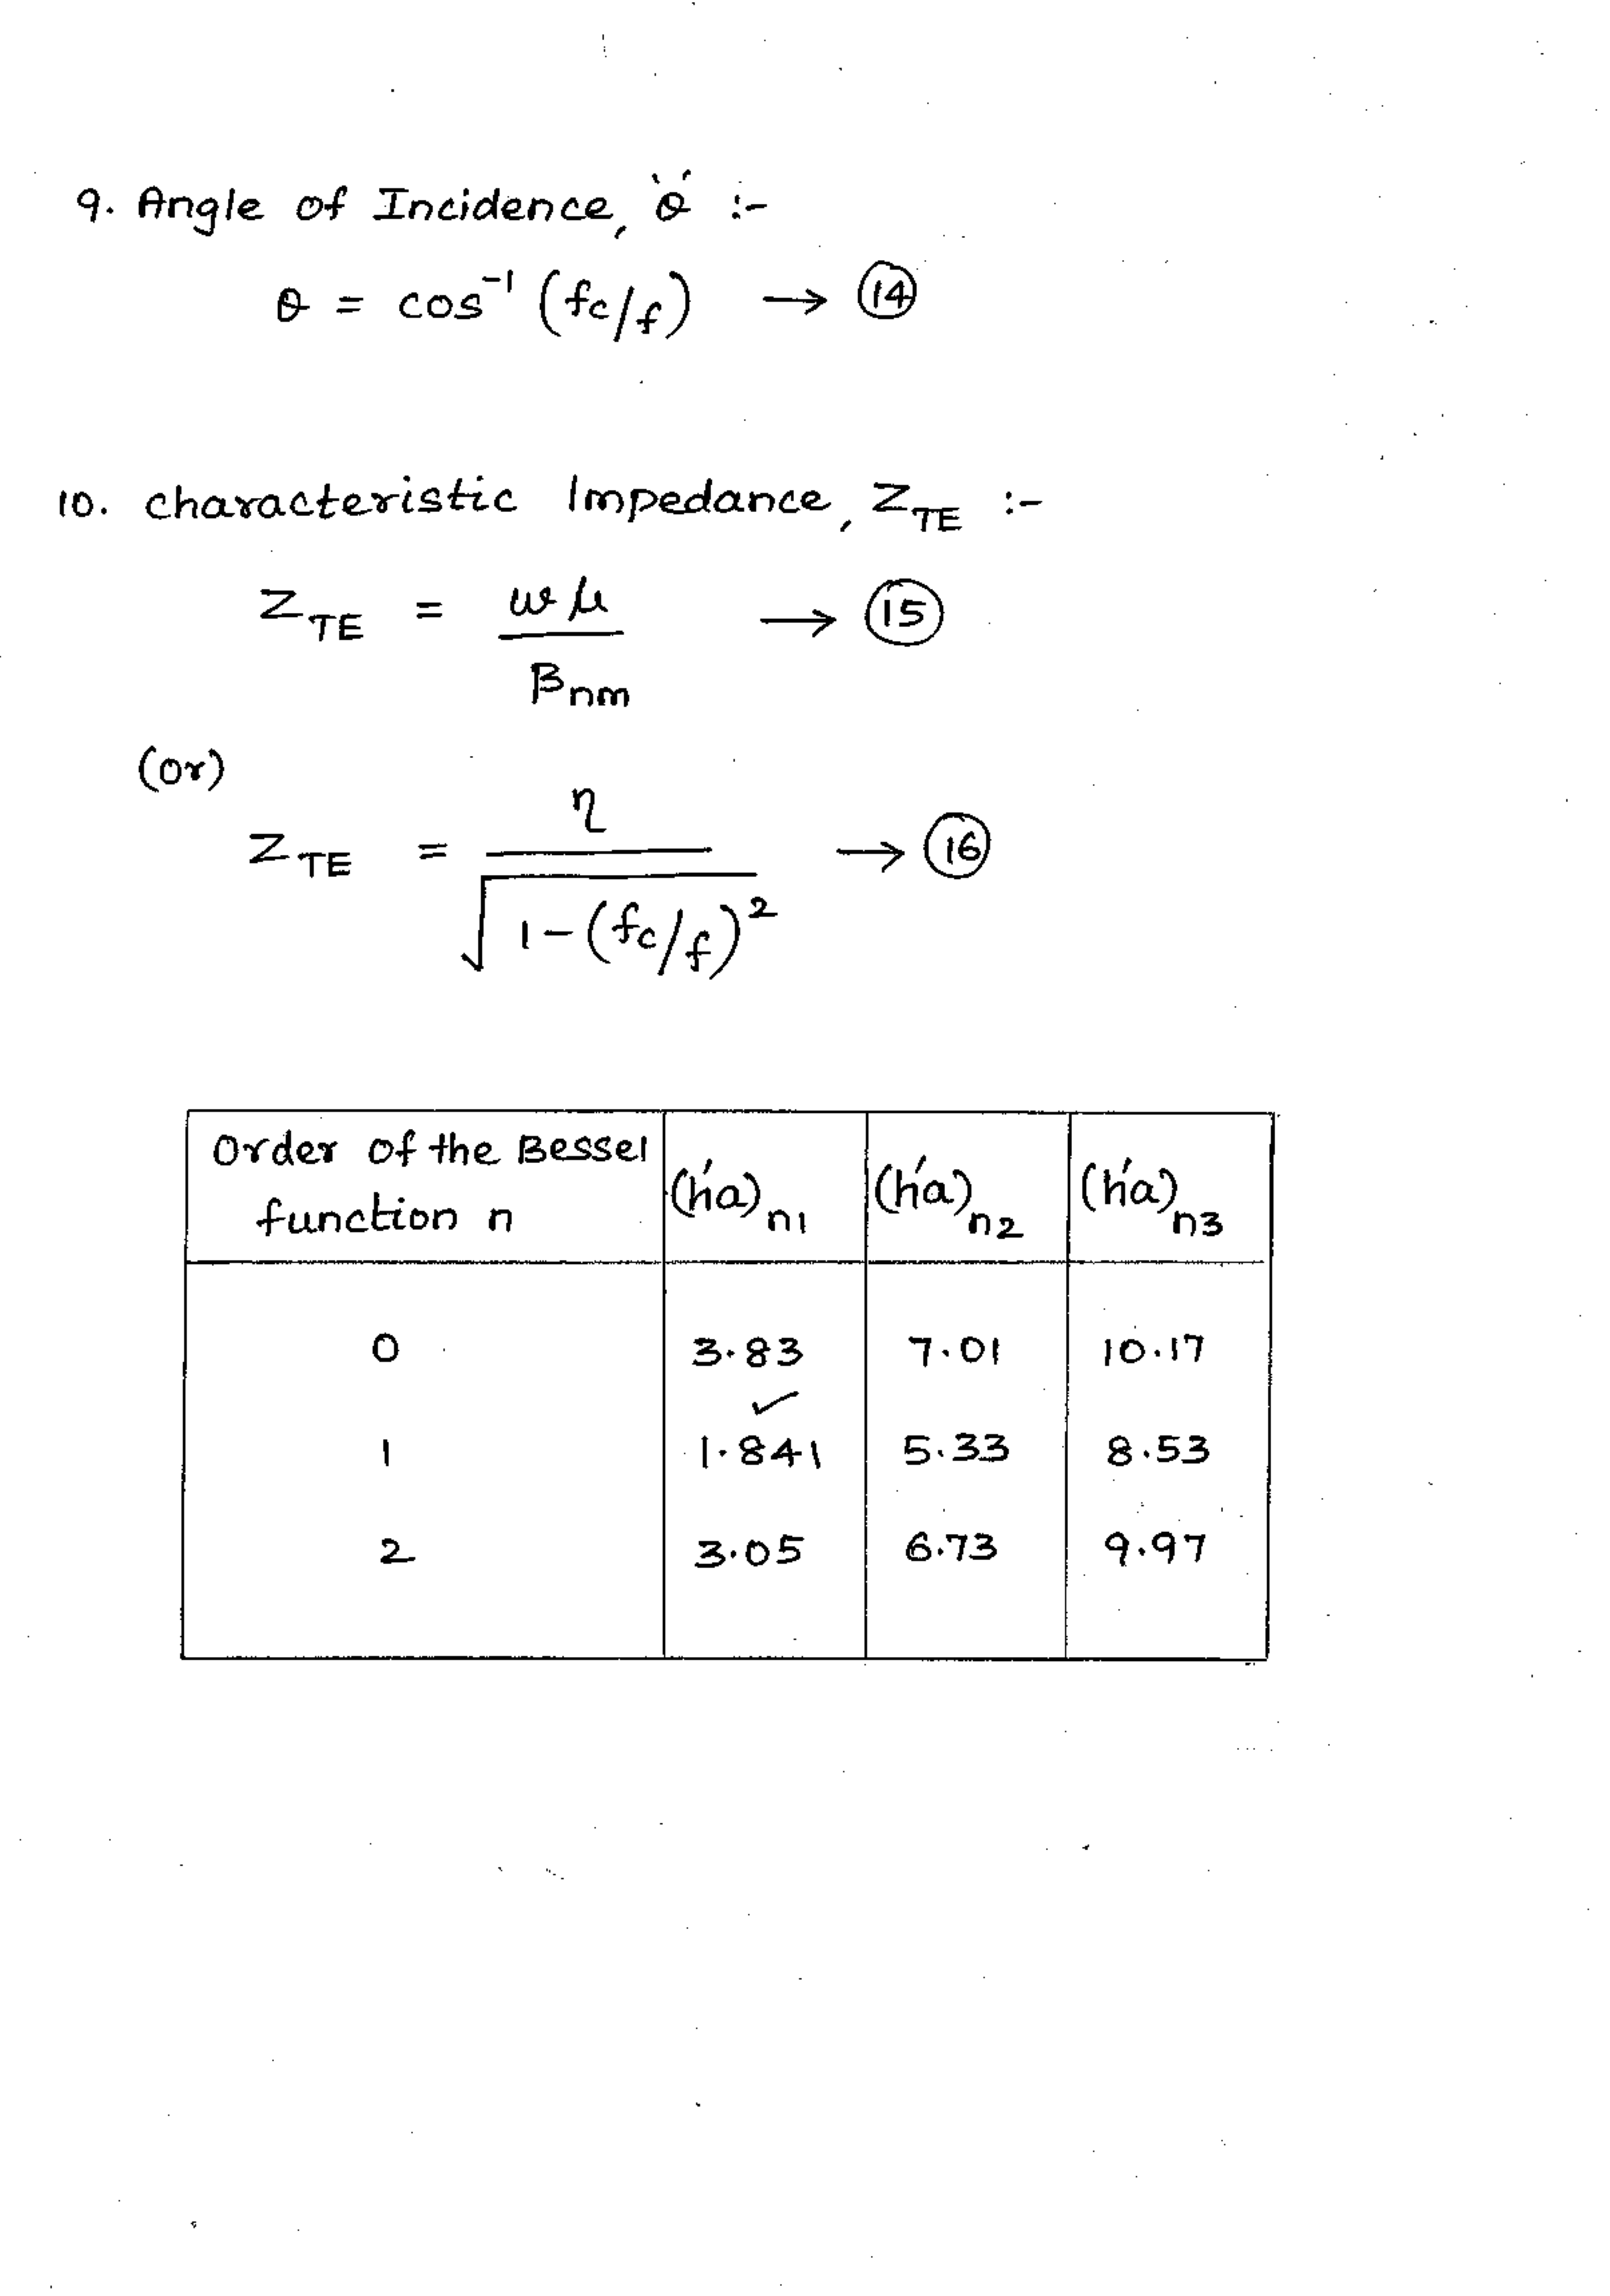 9. Angle of Incidence, 'θ' :-
θ = cos⁻¹ (fc/f) → (14)
10. characteristic Impedance, Z_TE :-
Z_TE = ωμ / β_nm → (15)
(or)
Z_TE = η / √(1-(fc/f)²) → (16)
Order of the Bessel function n | (h'a)_n1 | (h'a)_n2 | (h'a)_n3
0 3.83 7.01 10.17
✓
1 1.841 5.33 8.53
2 3.05 6.73 9.97